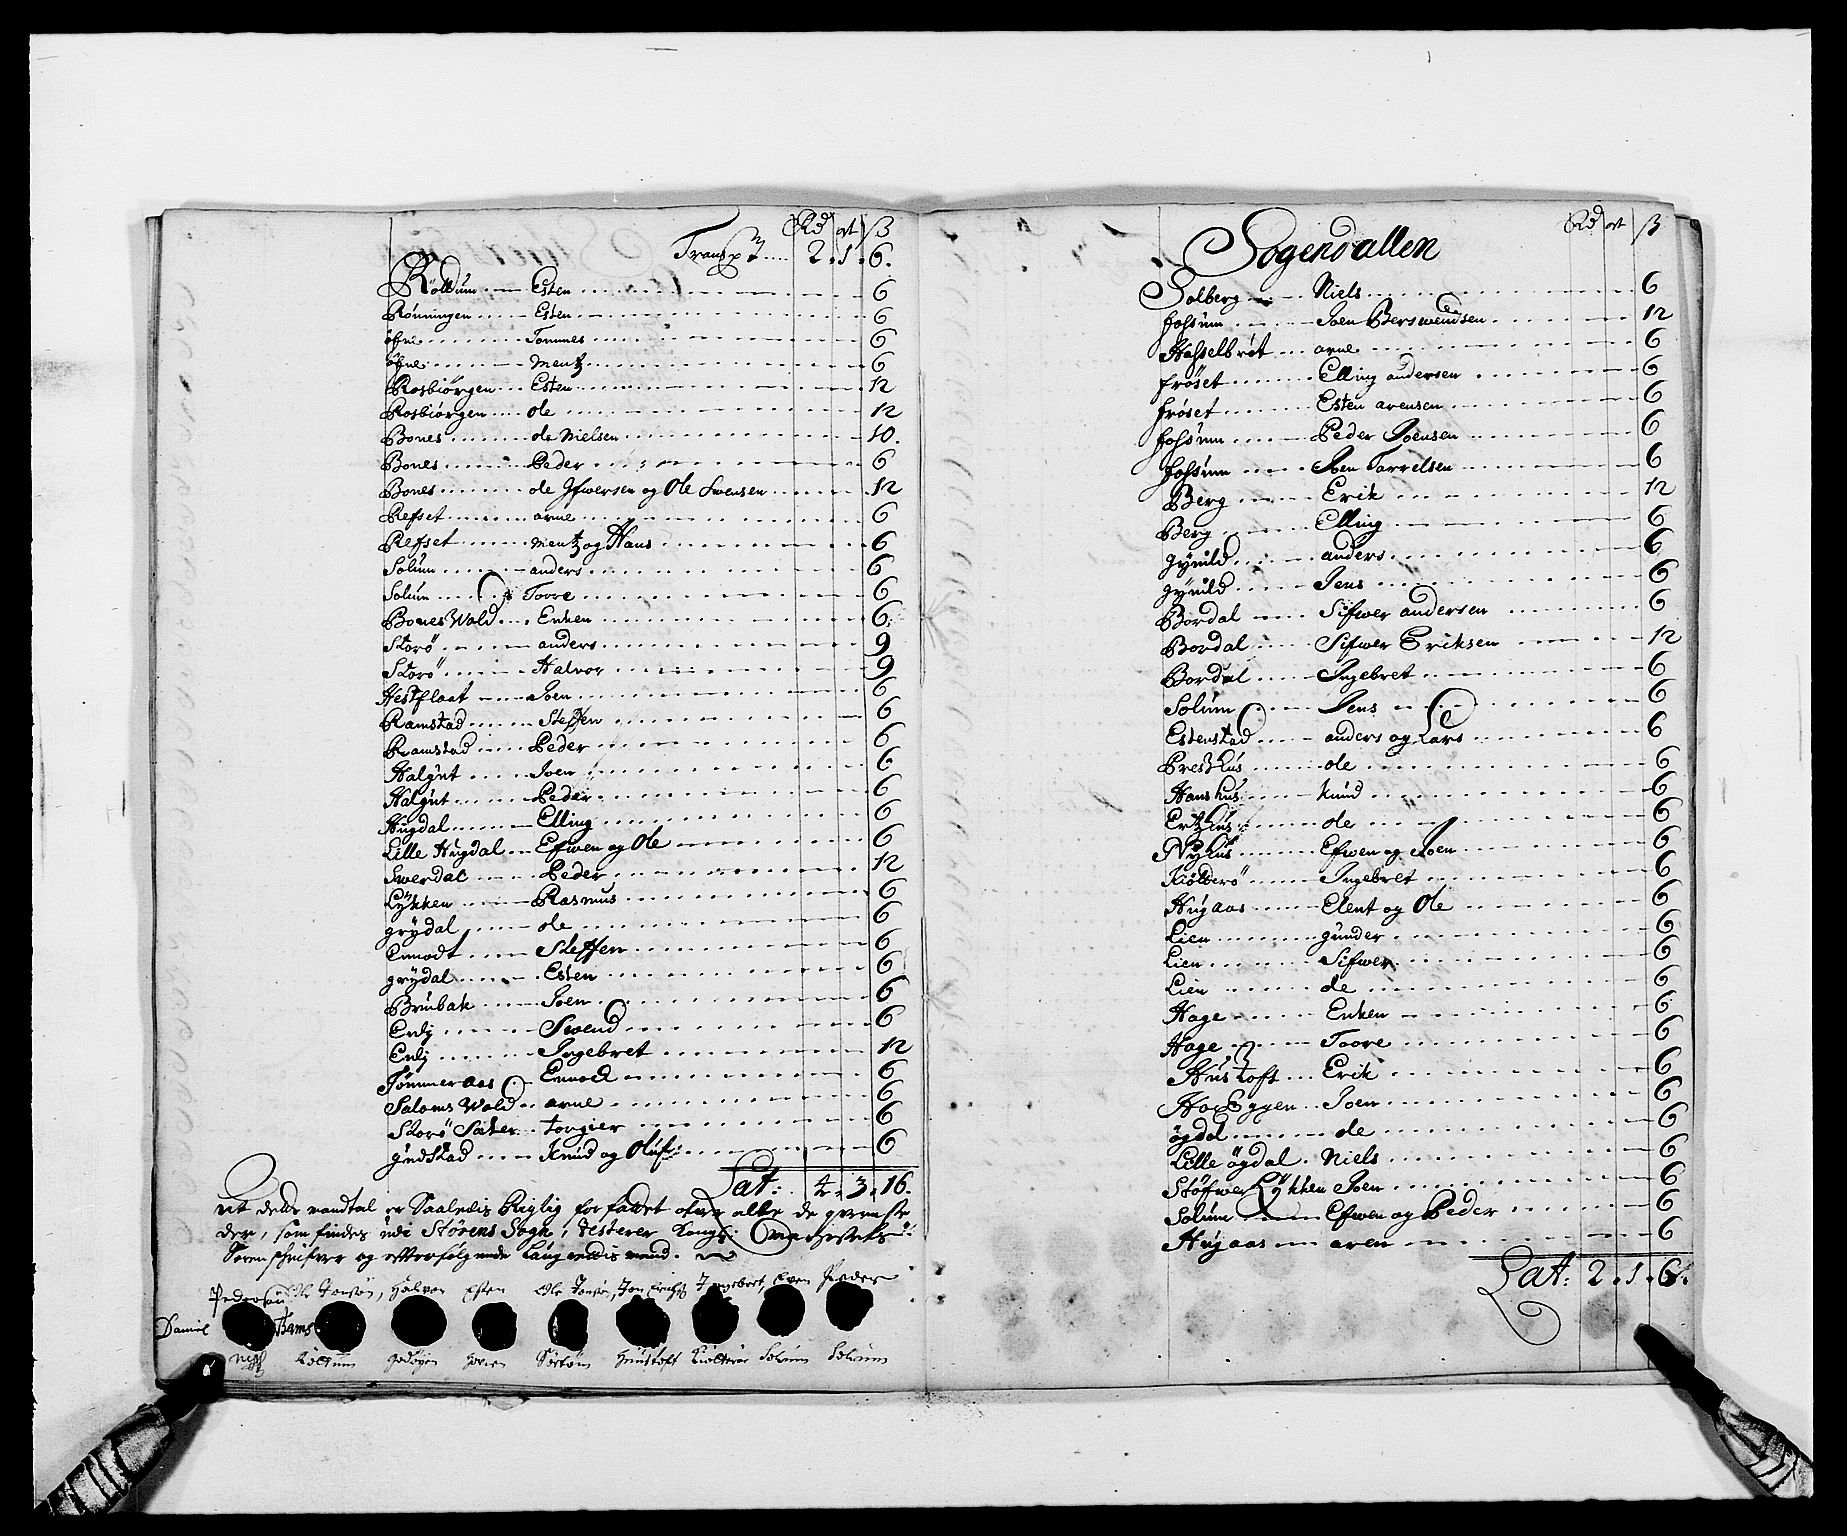 Rd ort ß
Transpt .... 2 . 1 . 6 .
Rolldum ... Esten ... 6
Rönningen ... Esten ... 6
öfne ... Tommes ... 6
öfne ... Mentz ... 6
Rosbiörgen ... Esten ... 12
Rosbiörgen ... ole ... 12
Bones ... ole Nielsen ... 10 .
Bones ... Peder ... 6
Bones ... ole Ifwersen og Ole Swensen ... 12
Refset ... arne ... 6
Refset ... Mentz og Hans ... 6
Solum ... anders ... 6
Solum ... Toore ... 6
Bones Wald ... Enken ... 6
Storö ... anders ... 9
Storö ... Halvor ... 9
Hestflaat ... Joen ... 6
Ramstad ... Steffen ... 6
Ramstad ... Peder ... 6
Halgut ... Joen ... 6
Halgut ... Peder ... 6
Hugdal ... Elling ... 6
Lille Hugdal ... Efwen og Ole ... 6
Swerdal ... Peder ... 12
Lykken ... Rasmus ... 6
grydal ... ole ... 6
Enmodt ... Steffen ... 6
grydal ... Esten ... 6
Brubak ... Joen ... 6
Enlj ... Swend ... 6
Enlj ... Ingebret ... 12
Tömmeraas ... Ennock ... 6
Saloms Wald ... arne ... 6
Storö Sæter ... torgier ... 6
gudstad ... Knud og Oluf ... 6
Lat: 4 . 3 . 16 .
At dette mandtal er Saaledis Rigtig forfattet ofwer alle de
der, som findes udi Störens Sogn, testerer Kongl: Majestets
Sorenschrifwer og efterfölgende Laug rettis mend.
Pedersen Ole Jonsön, Halvor Esten Ole Jonsön, Jon Erichs: Ingebret, Even Peder
Daniel Bams
Rolttum godöyen horien Sörtöm Hustoft Kiölterör Solum Solum
Rd ort ß
Sogendallen
Solberg ... Niels ... 6
fossum ... Joen Berswendsen ... 12
Hasselbröt ... arne ... 6
fröset ... Elling andersen ... 6
fröset ... Esten arensen ... 6
fossum ... Peder Joensen ... 6
fossum ... Joen Torrelsen ... 6
Berg ... Erik ... 12
Berg ... Elling ... 6
gynild ... anders ... 6
gynild ... Jens ... 6
Bordal ... Sifwer andersen ... 6
Bordal ... Sifwer Eriksen ... 12
Bordal ... Ingebret ... 6
Solum ... Jens ... 6
Estenstad ... anders og Lars ... 6
Presthus ... ole ... 6
Hanshus ... knud ... 6
Ertzhus ... ole ... 6
Nyhus ... Efwen og Joen ... 6
Kiölderö ... Ingebret ... 6
Hugaas ... Elent og Ole ... 6
Lien ... gunder ... 6
Lien ... Sifwer ... 6
Lien ... ole ... 6
Hage ... Enken ... 6
Hage ... Toore ... 6
Hustoft ... Erik ... 6
Hoe Eggen ... Joen ... 6
ögdal ... ole ... 6
Lille ögdal . Niels ... 6
Stöfwer Lykken Joen ... 6
Solum ... Efwen og Peder ... 6
Hugaas ... aren ... 6
Lat: 2 . 1 . 6 .